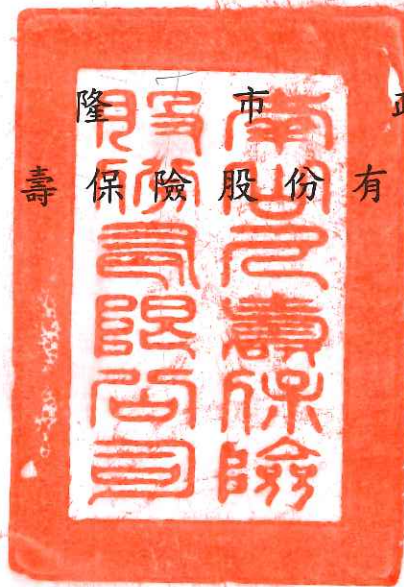 隆市
壽保險股份有
南山人壽保險
股份有限公司